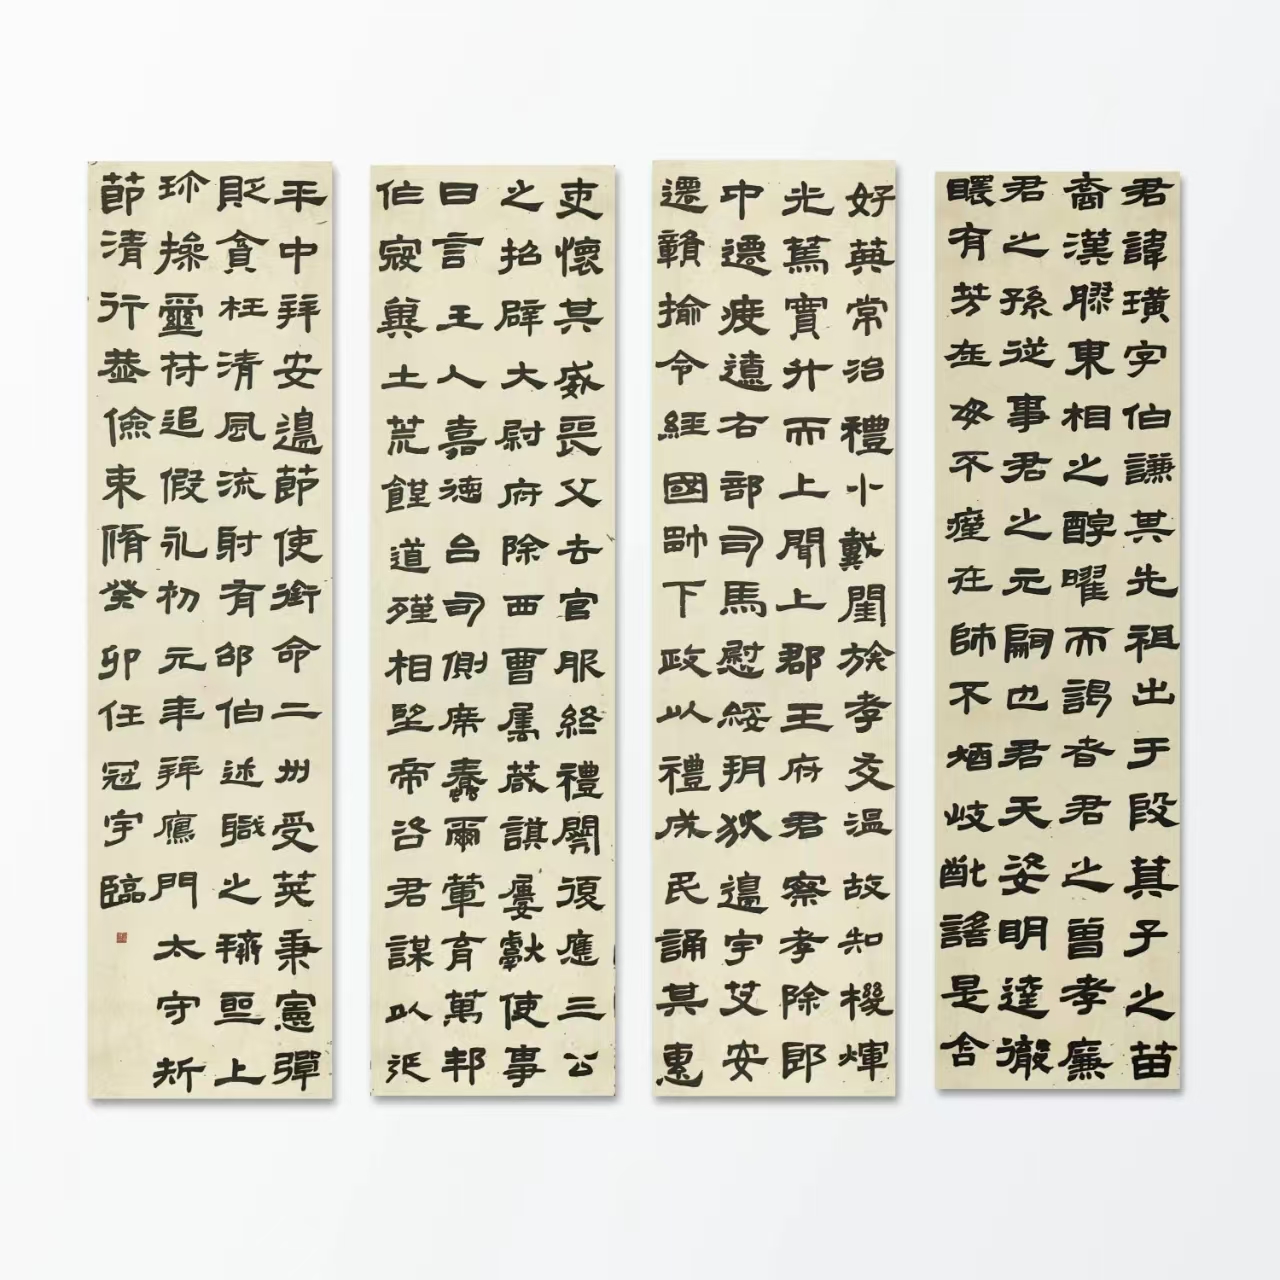 君諱璜字伯謙其先祖出于段其子之苗
裔漢膠東相之醇曜而謁者君之曾孝廉
君之孫從事君之元嗣也君天姿明達徹
曖有芳在母不瘽在師不煩岐酏謠是含
好典常治禮小戴閨族孝友溫故知機煇
光篤實升而上聞上郡王府君察孝除郎
中遷度遼右部司馬慰綏玥狄邊宇艾安
遷贛揄令經國帥下政以禮成民誦其惠
吏懷其威喪父去官服終禮闋復應三公
之招辟大尉府除西曹属葴謀屢獻使事
曰言王人嘉德台司側席蠢爾葷育萬邦
作寇冀土荒饉道殣相望帝咨君謀以延
平中拜安邊節使銜命二州受莢秉憲彈
貶貪枉清風流射有邵伯述職之稱聖上
珎操璽苻追假永初元年拜鴈門太守折
節清行恭儉束脩癸卯任冠宇臨